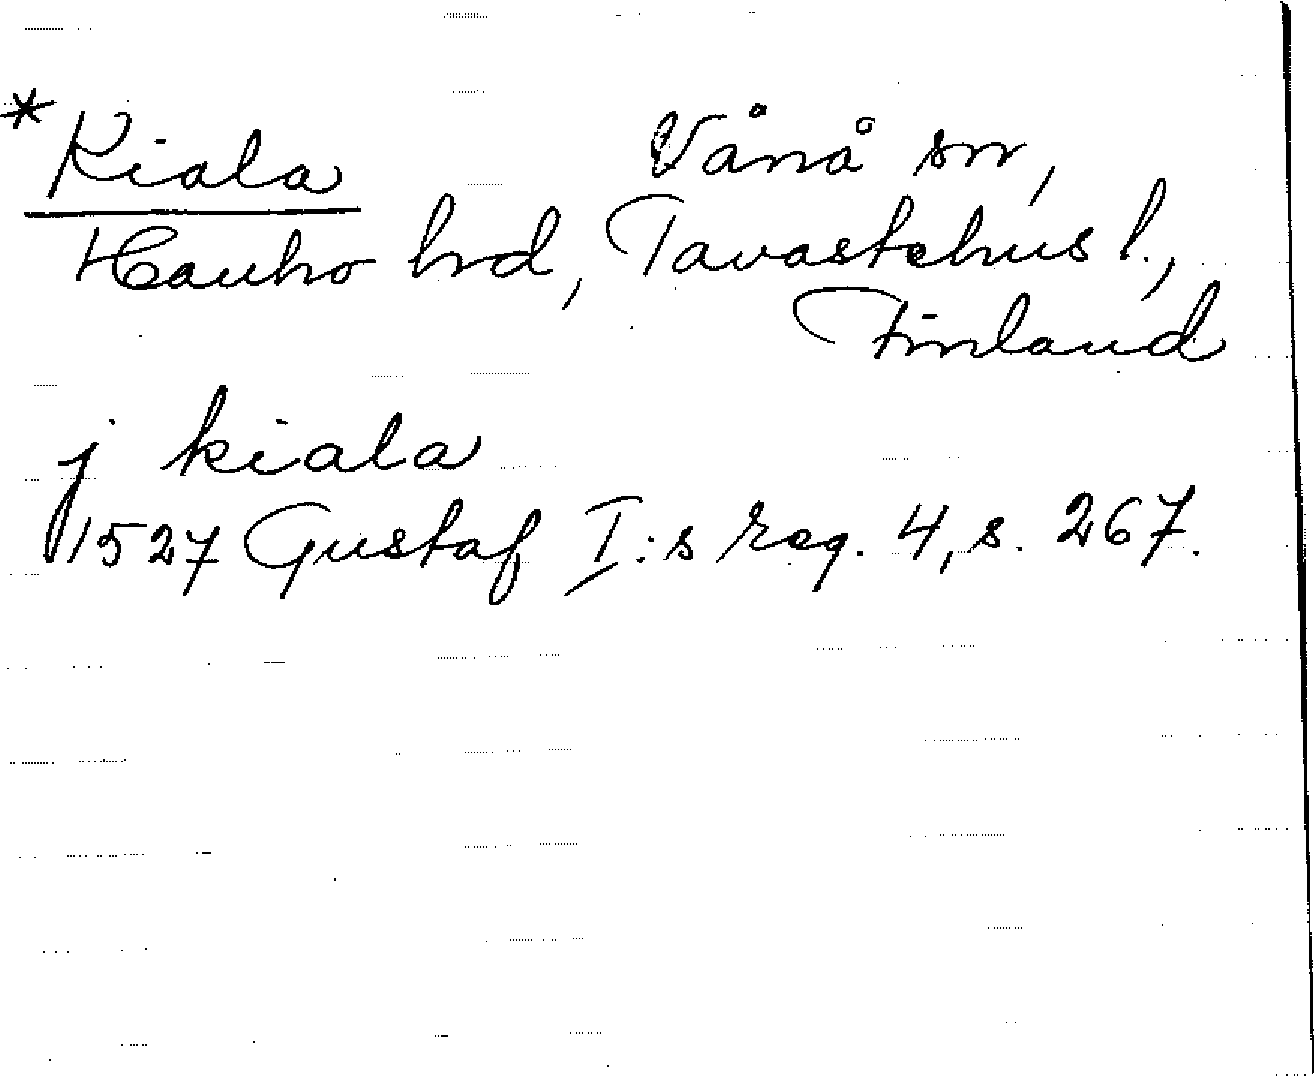 * Kiala Vånå sn,
Hauho hrd, Tavastehus l.,
Finland
j kiala
1527 Gustaf I:s reg. 4, s. 267.